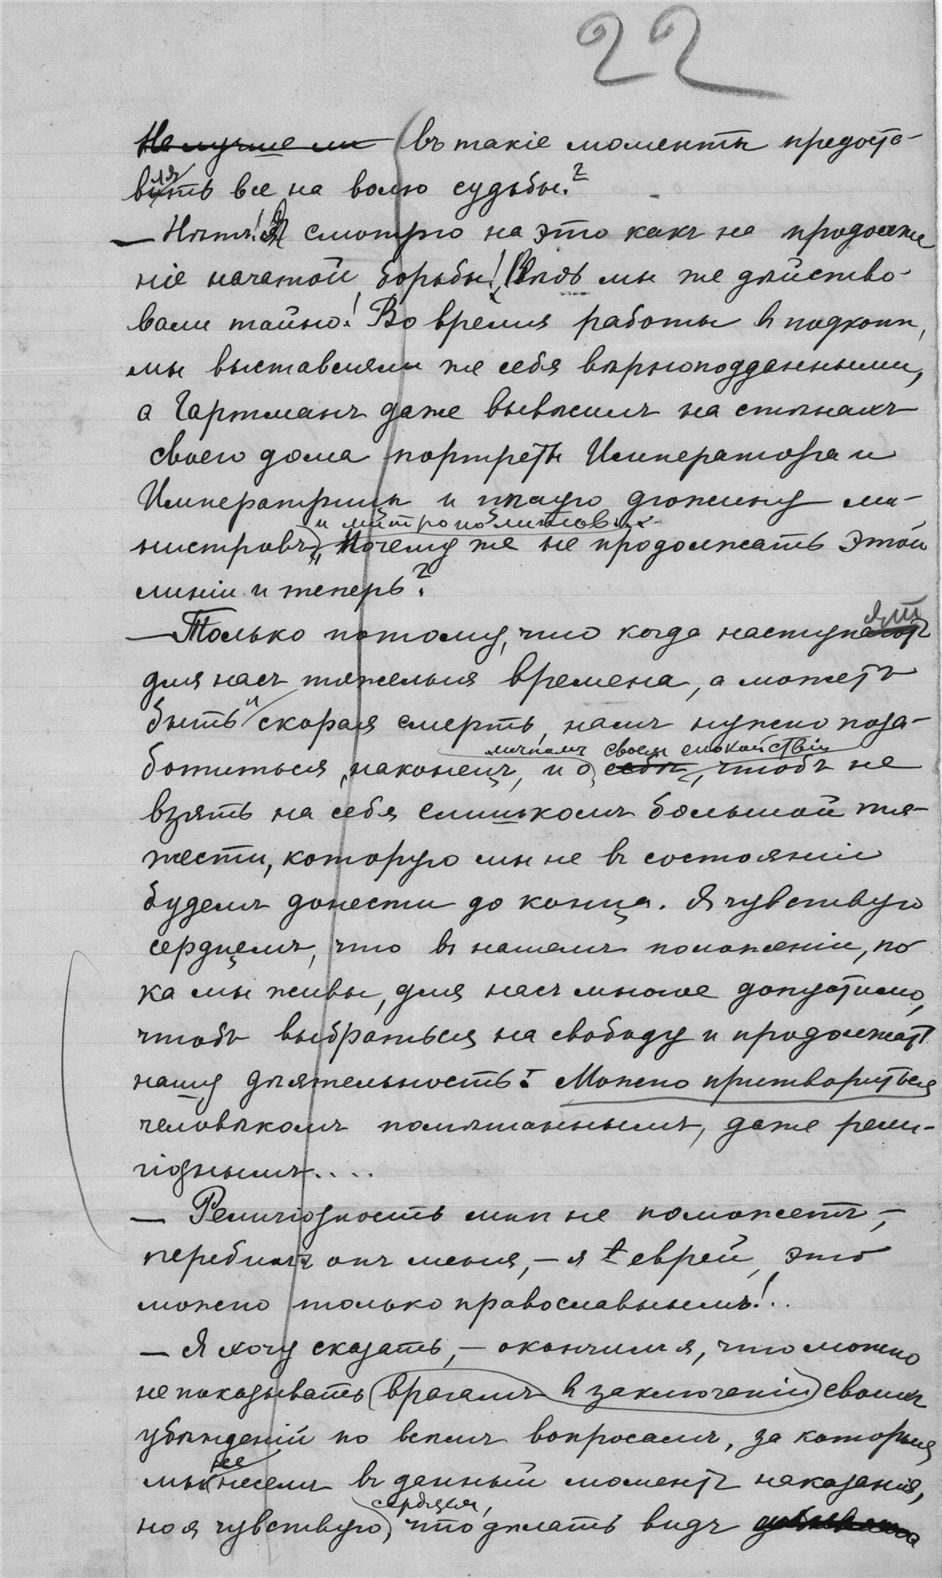 22
Не лучше ли въ такіе моменты предоста-
влять все на волю судьбы?
— Нѣтъ! Я смотрю на это какъ на продолже
ніе начатой борьбы! Вѣдь мы же дѣйство-
вали тайно! Во время работы в подкопѣ,
мы выставляли же себя вѣрноподданными,
а Гартманъ даже вывѣсилъ на стѣнахъ
своего дома портреты Императора и
Императрицы и цѣлую дюжину ми-
и митрополитовъ
нистровъ, Почему же не продолжать этой
линіи и теперь?
— Только потому, что когда наступаютъ
для насъ тяжелыя времена, а можетъ
быть и скорая смерть, намъ нужно поза-
личномъ своемъ спокойствіи
ботиться, наконецъ, и о себѣ, чтобъ не
взять на себя слишкомъ большой тя-
жести, которую мы не въ состояніи
будемъ донести до конца. Я чувствую
сердцемъ, что въ нашемъ положеніи, по
ка мы живы, для насъ многое допустимо,
чтобъ выбраться на свободу и продолжать
нашу дѣятельность! Можно притвориться
человѣкомъ помѣшаннымъ, даже рели-
гіознымъ....
— Религіозность мнѣ не поможетъ, —
перебилъ онъ меня, — я еврей, это
можно только православнымъ!..
— Я хочу сказать, — окончилъ я, что можно
не показывать врагамъ в заключеніи своихъ
убѣжденій по всѣмъ вопросамъ, за которые
мы не несемъ въ данный моментъ наказанія,
сердцемъ,
но я чувствую, что дѣлать видъ